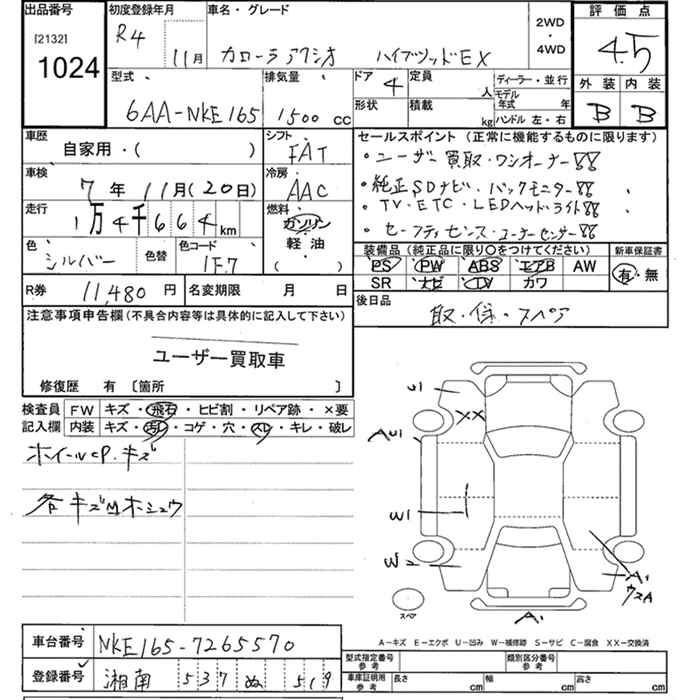 出品番号
[2132]
1024
初度登録年月
R4
11月
車名・グレード
カローラアクシオ ハイブリッドEX
2WD
・
4WD
評価点
4.5
外装 内装
B B
型式
6AA-NKE165
排気量
1500 cc
ドア
4
定員
人
形状
積載
kg
ディーラー・並行
モデル
年式 年
ハンドル 左・右
車歴
自家用・( )
車検
7年11月(20日)
走行
1万4千664km
色
シルバー
色替
色コード
1F7
シフト
FAT
冷房
AAC
燃料
ガソリン
軽油
( )
セールスポイント (正常に機能するものに限ります)
・ユーザー買取・ワンオーナー!!
・純正SDナビ・バックモニター!!
・TV・ETC・LEDヘッドライト!!
・セーフティセンス・コーナーセンサー!!
装備品 (純正品に限り○をつけてください)
PS PW ABS エアB AW
SR ナビ TV カワ
新車保証書
有・無
R券
11,480円
名変期限 月 日
後日品
取・保・スペア
注意事項申告欄(不具合内容等は具体的に記入して下さい)
ユーザー買取車
修復歴 有 [箇所 ]
検査員
記入欄
FW キズ・飛石・ヒビ割・リペア跡・×要
内装 キズ・汚レ・コゲ・穴・スレ・キレ・破レ
ホイールCP.キズ
各キズMホシュウ
XX
W1
W
A1
スペア
A-キズ E-エクボ U-凹み W-補修跡 S-サビ C-腐食 XX-交換済
車台番号
NKE165-7265570
登録番号
湘南 537 ぬ 519
型式指定番号
参考
類別区分番号
車庫証明用
参考
長さ cm
幅 cm
高さ cm